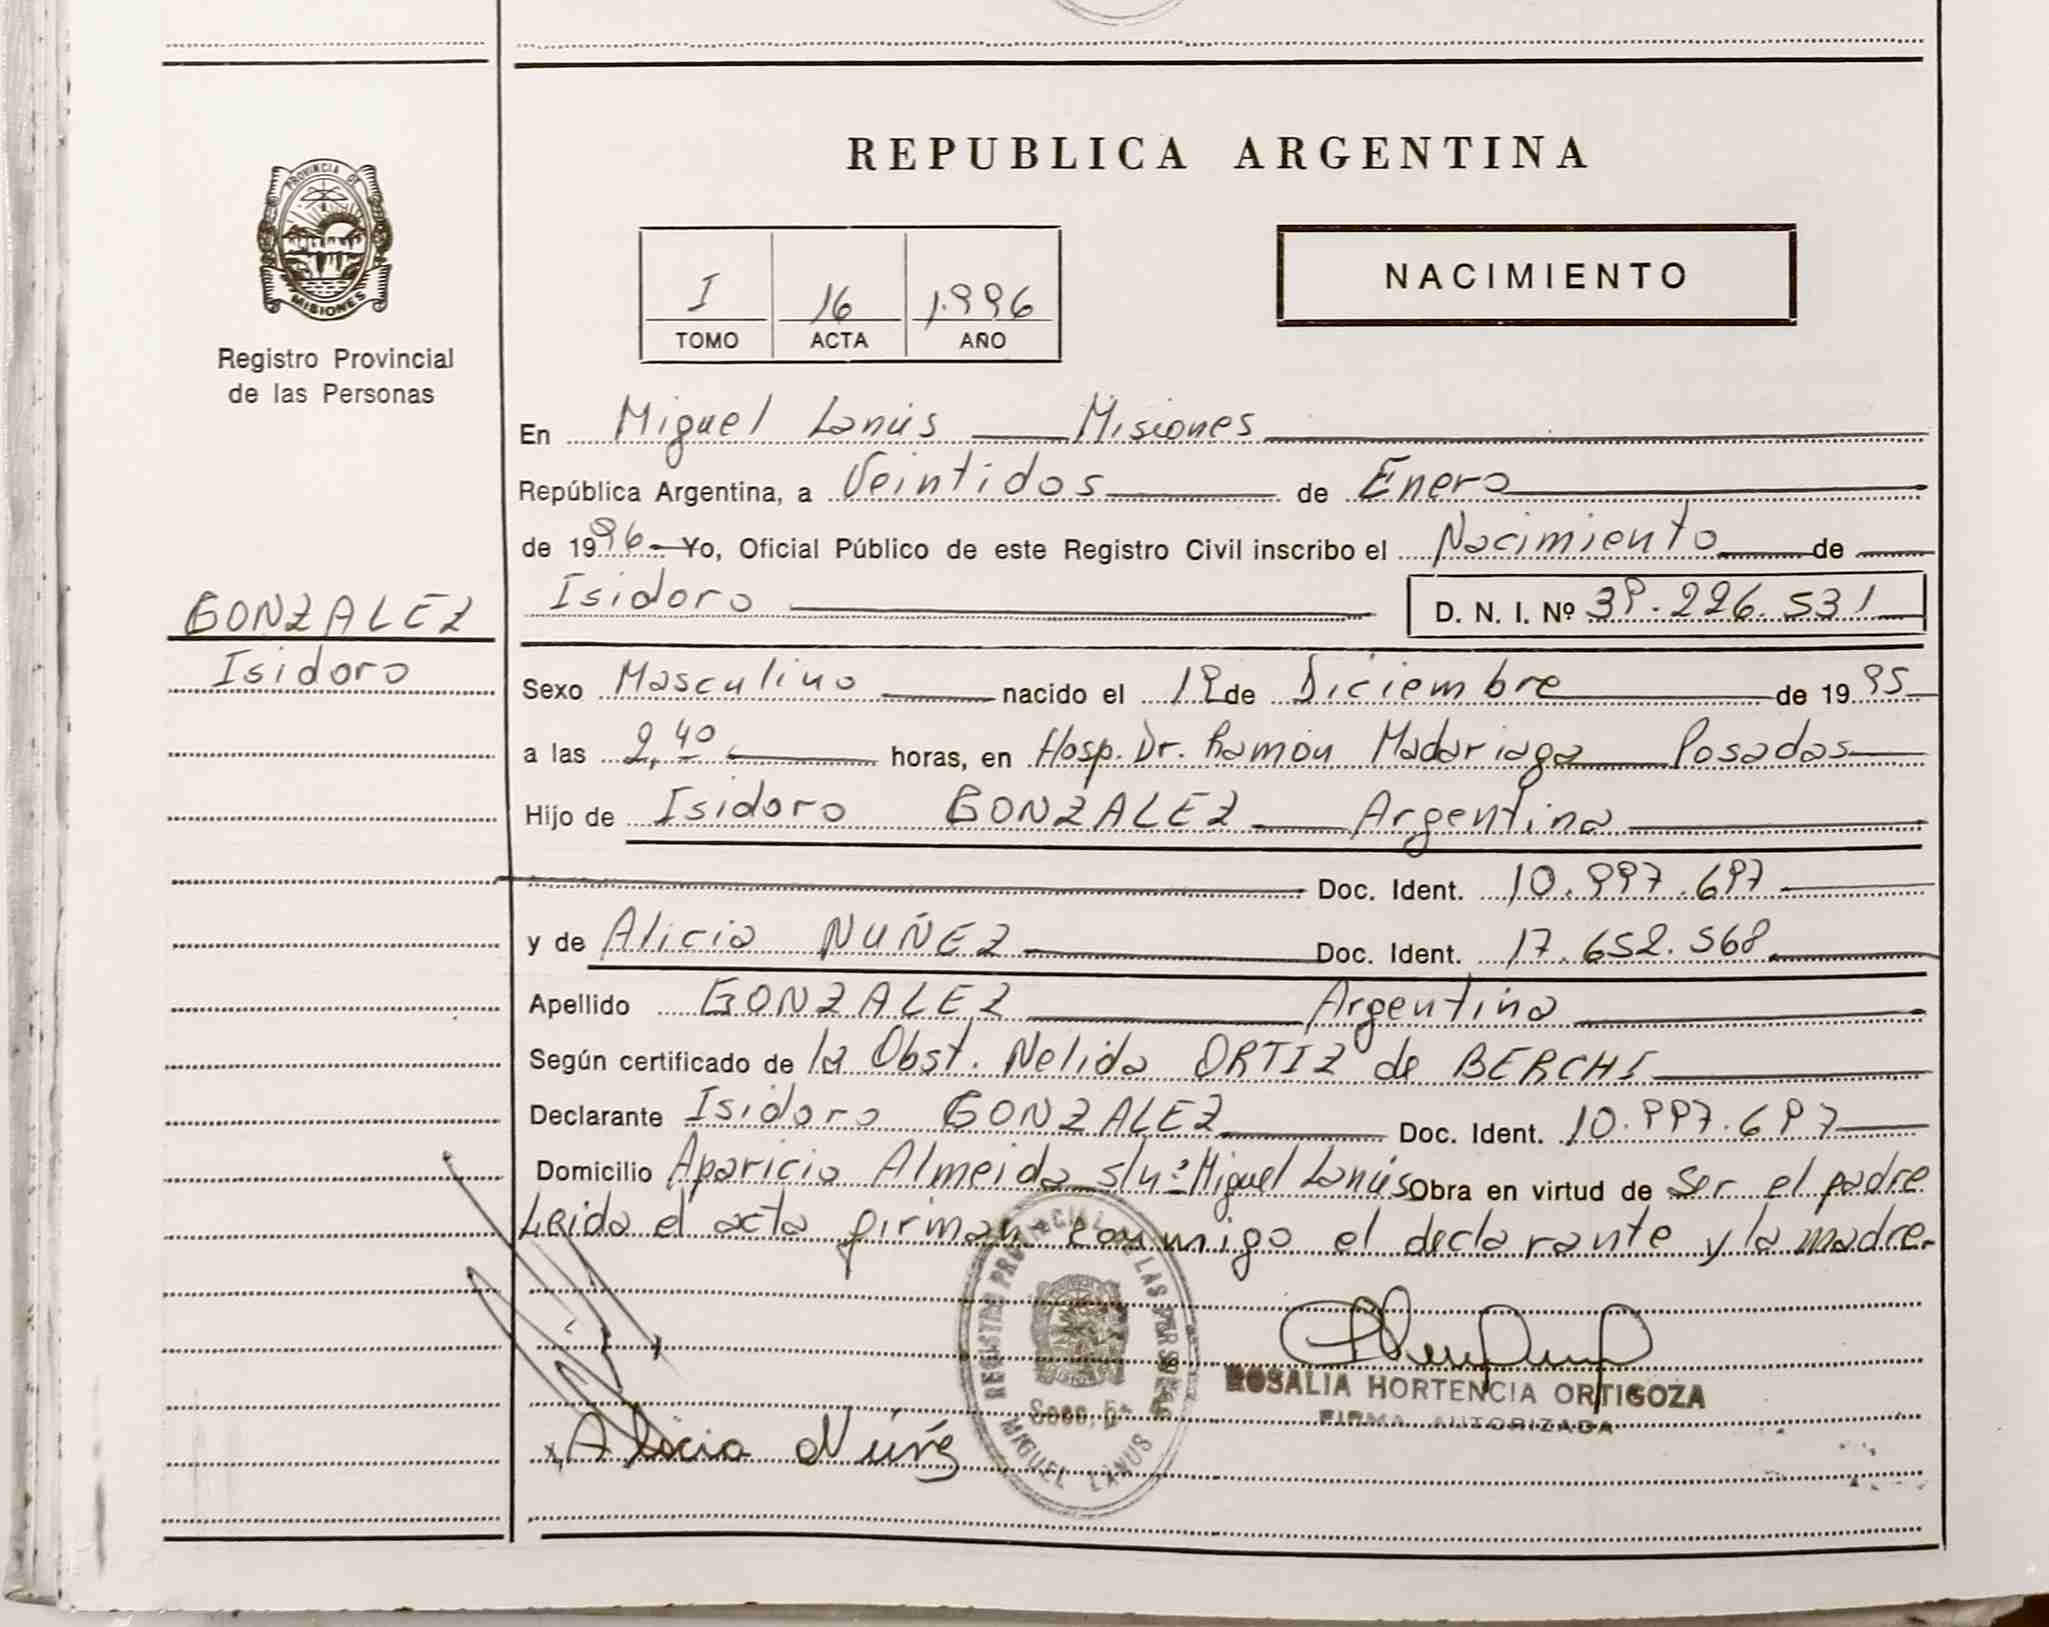 REPUBLICA ARGENTINA
PROVINCIA DE
MISIONES
Registro Provincial
de las Personas
I
TOMO
16
ACTA
1.996
AÑO
NACIMIENTO
En Miguel Lanús Misiones
República Argentina, a Veintidos de Enero
de 1996 Yo, Oficial Público de este Registro Civil inscribo el Nacimiento de
Isidoro D. N. I. Nº 39.226.531
GONZALEZ
Isidoro
Sexo Masculino nacido el 19 de Diciembre de 1995
a las 2,40 horas, en Hosp. Dr. Ramón Madariaga Posadas
Hijo de Isidoro GONZALEZ Argentina
Doc. Ident. 10.997.697
y de Alicia NUÑEZ Doc. Ident. 17.652.568
Apellido GONZALEZ Argentina
Según certificado de la Obst. Nelida ORTIZ de BERCHI
Declarante Isidoro GONZALEZ Doc. Ident. 10.997.697
Domicilio Aparicio Almeida s/nº Miguel Lanús Obra en virtud de ser el padre
Leida el acta firman conmigo el declarante y la madre.
REGISTRO PROVINCIAL DE LAS PERSONAS
MIGUEL LANUS
ROSALIA HORTENCIA ORTIGOZA
FIRMA AUTORIZADA
Alicia Núñez